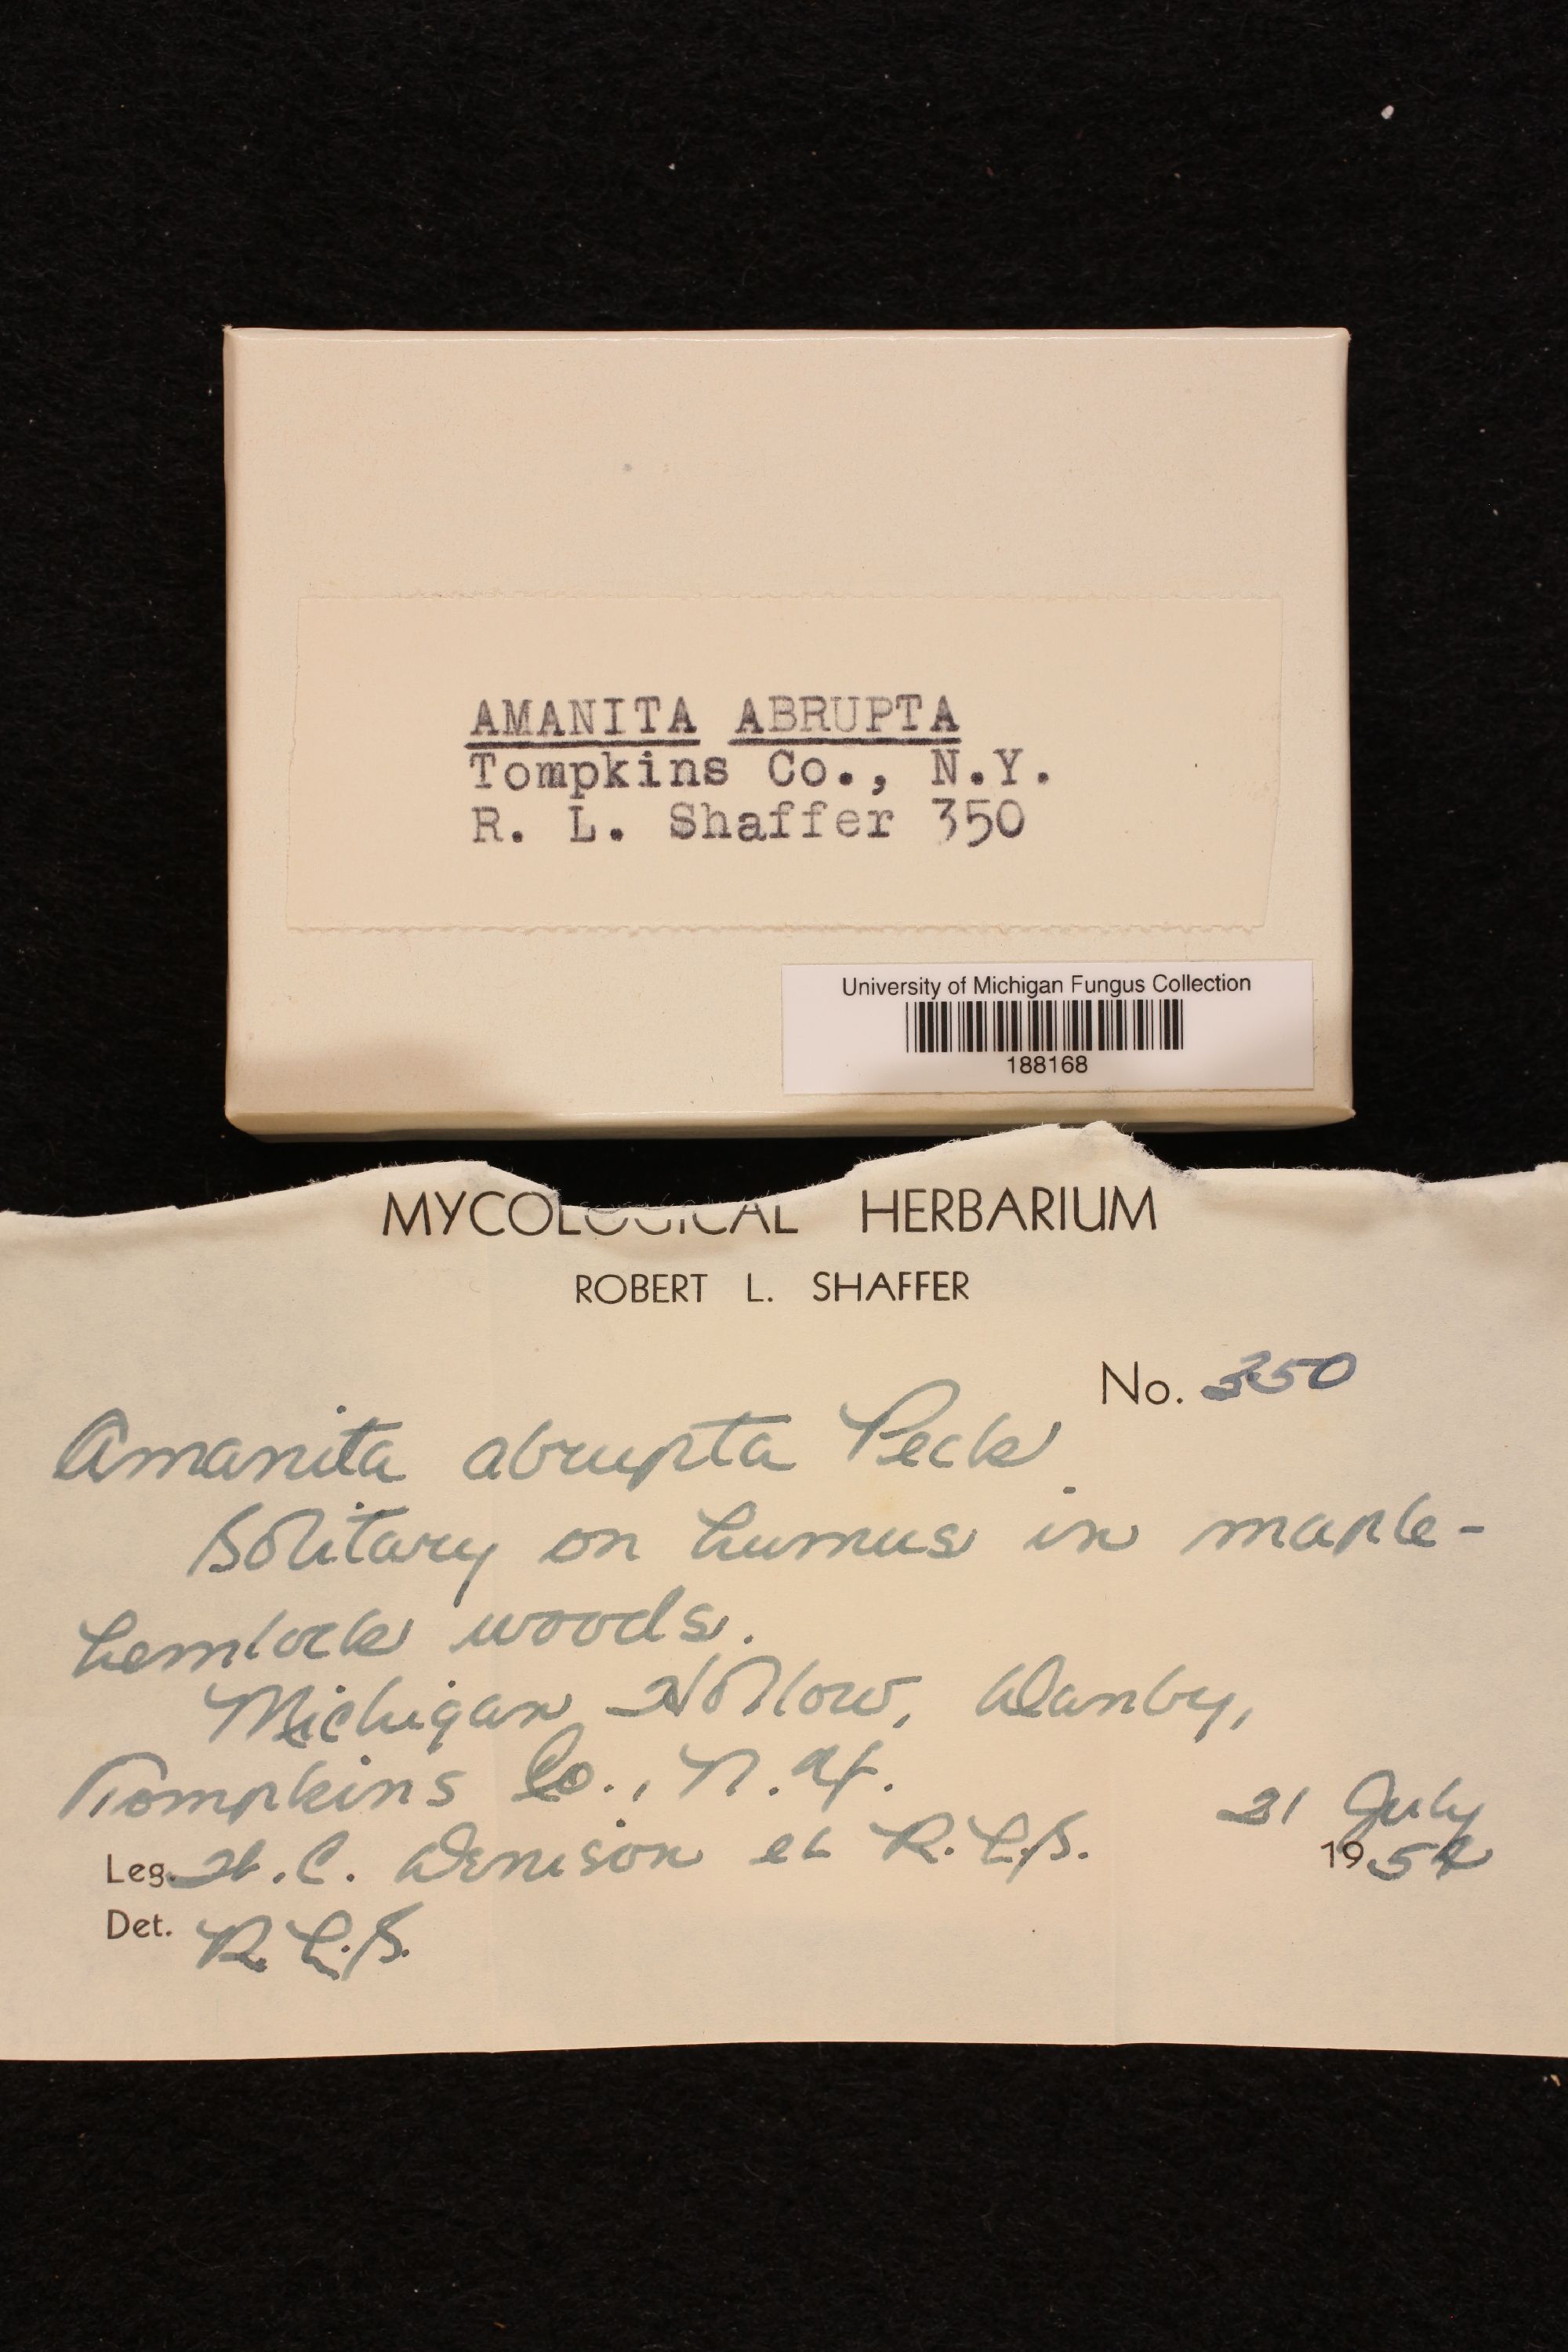 AMANITA ABRUPTA
Tompkins Co., N.Y.
R. L. Shaffer 350
University of Michigan Fungus Collection
188168
MYCOLOGICAL HERBARIUM
ROBERT L. SHAFFER
No. 350
Amanita abrupta Peck
Solitary on humus in maple-
hemlock woods.
Michigan Hollow, Danby,
Tompkins Co., N.Y.
21 July
Leg. C. Denison et R.L.S.
Det. R.L.S.